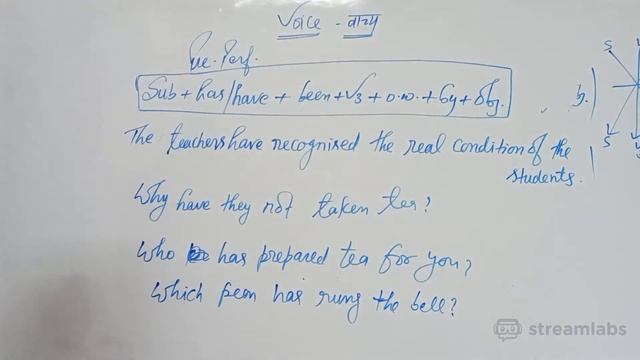 Voice - वाच्य
Pre. Perf.
Sub + has/have + been + V3 + o.w. + by + obj.
The teachers have recognised the real condition of the
students.
Why have they not taken tea?
Who has prepared tea for you?
Which peon has rung the bell?
S
b)
S
streamlabs